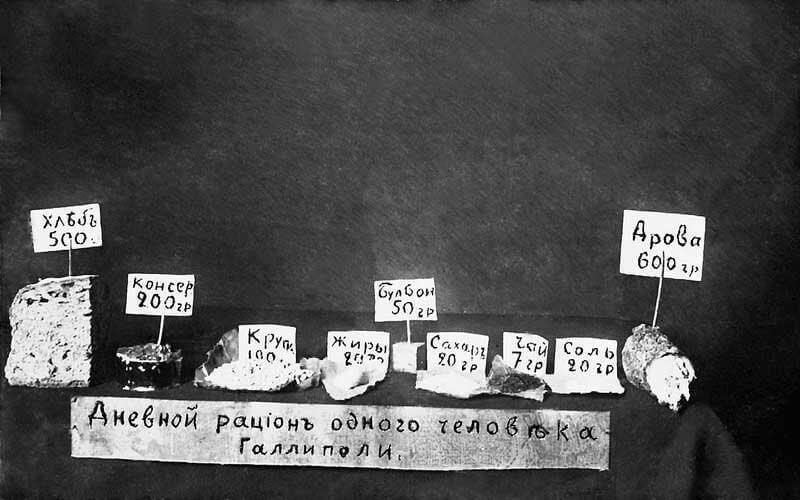 Хлѣбъ
500.
Консер
200 гр
Крупа
100.
Жиры
20 гр
Булбон
50 гр
Сахаръ
20 гр
Чай
7 гр
Соль
20 гр
Дрова
600 гр
Дневной раціонъ одного человѣка
Галлиполи.